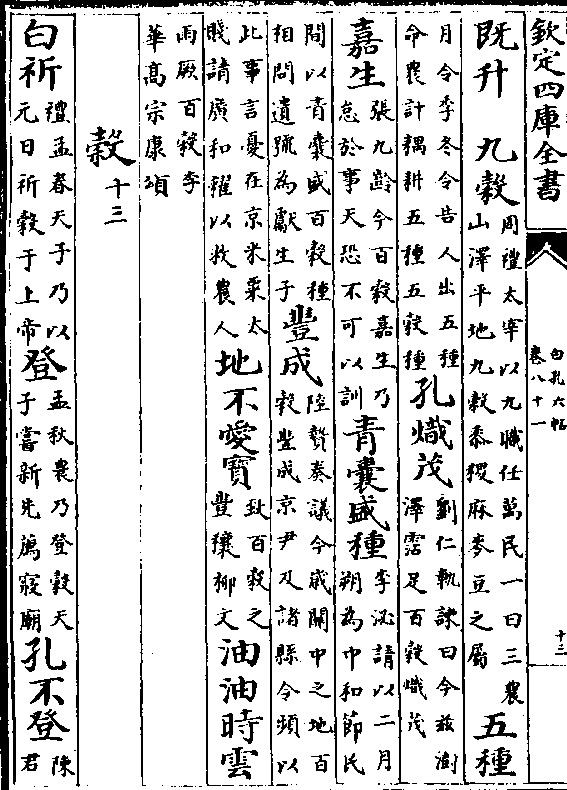 欽定四庫全書
白孔六帖
卷八十一
十三
既升 九穀周禮太宰以九職任萬民一曰三農山澤平地九穀黍稷麻麥豆之屬五種
月令季冬令告人出五種命農計耦耕五種五穀種孔熾茂劉仁軌諫曰今茲澍澤霑足百穀熾茂
嘉生張九齡今百穀嘉生乃怠於事天恐不可以訓青囊盛種李泌請以二月朔為中和節民
間以青囊盛百穀種相問遺號為獻生子豐成陸贄奏議今歲關中之地百穀豐成京尹及諸縣令頻以
此事言憂在京米粟太賤請廣和糴以救農人地不愛寶致百穀之豐穰柳文油油時雲
雨厥百穀李華高宗康頌
穀十三
白祈禮孟春天子乃以元日祈穀于上帝登孟秋農乃登穀天子嘗新先薦寢廟孔不登陳君